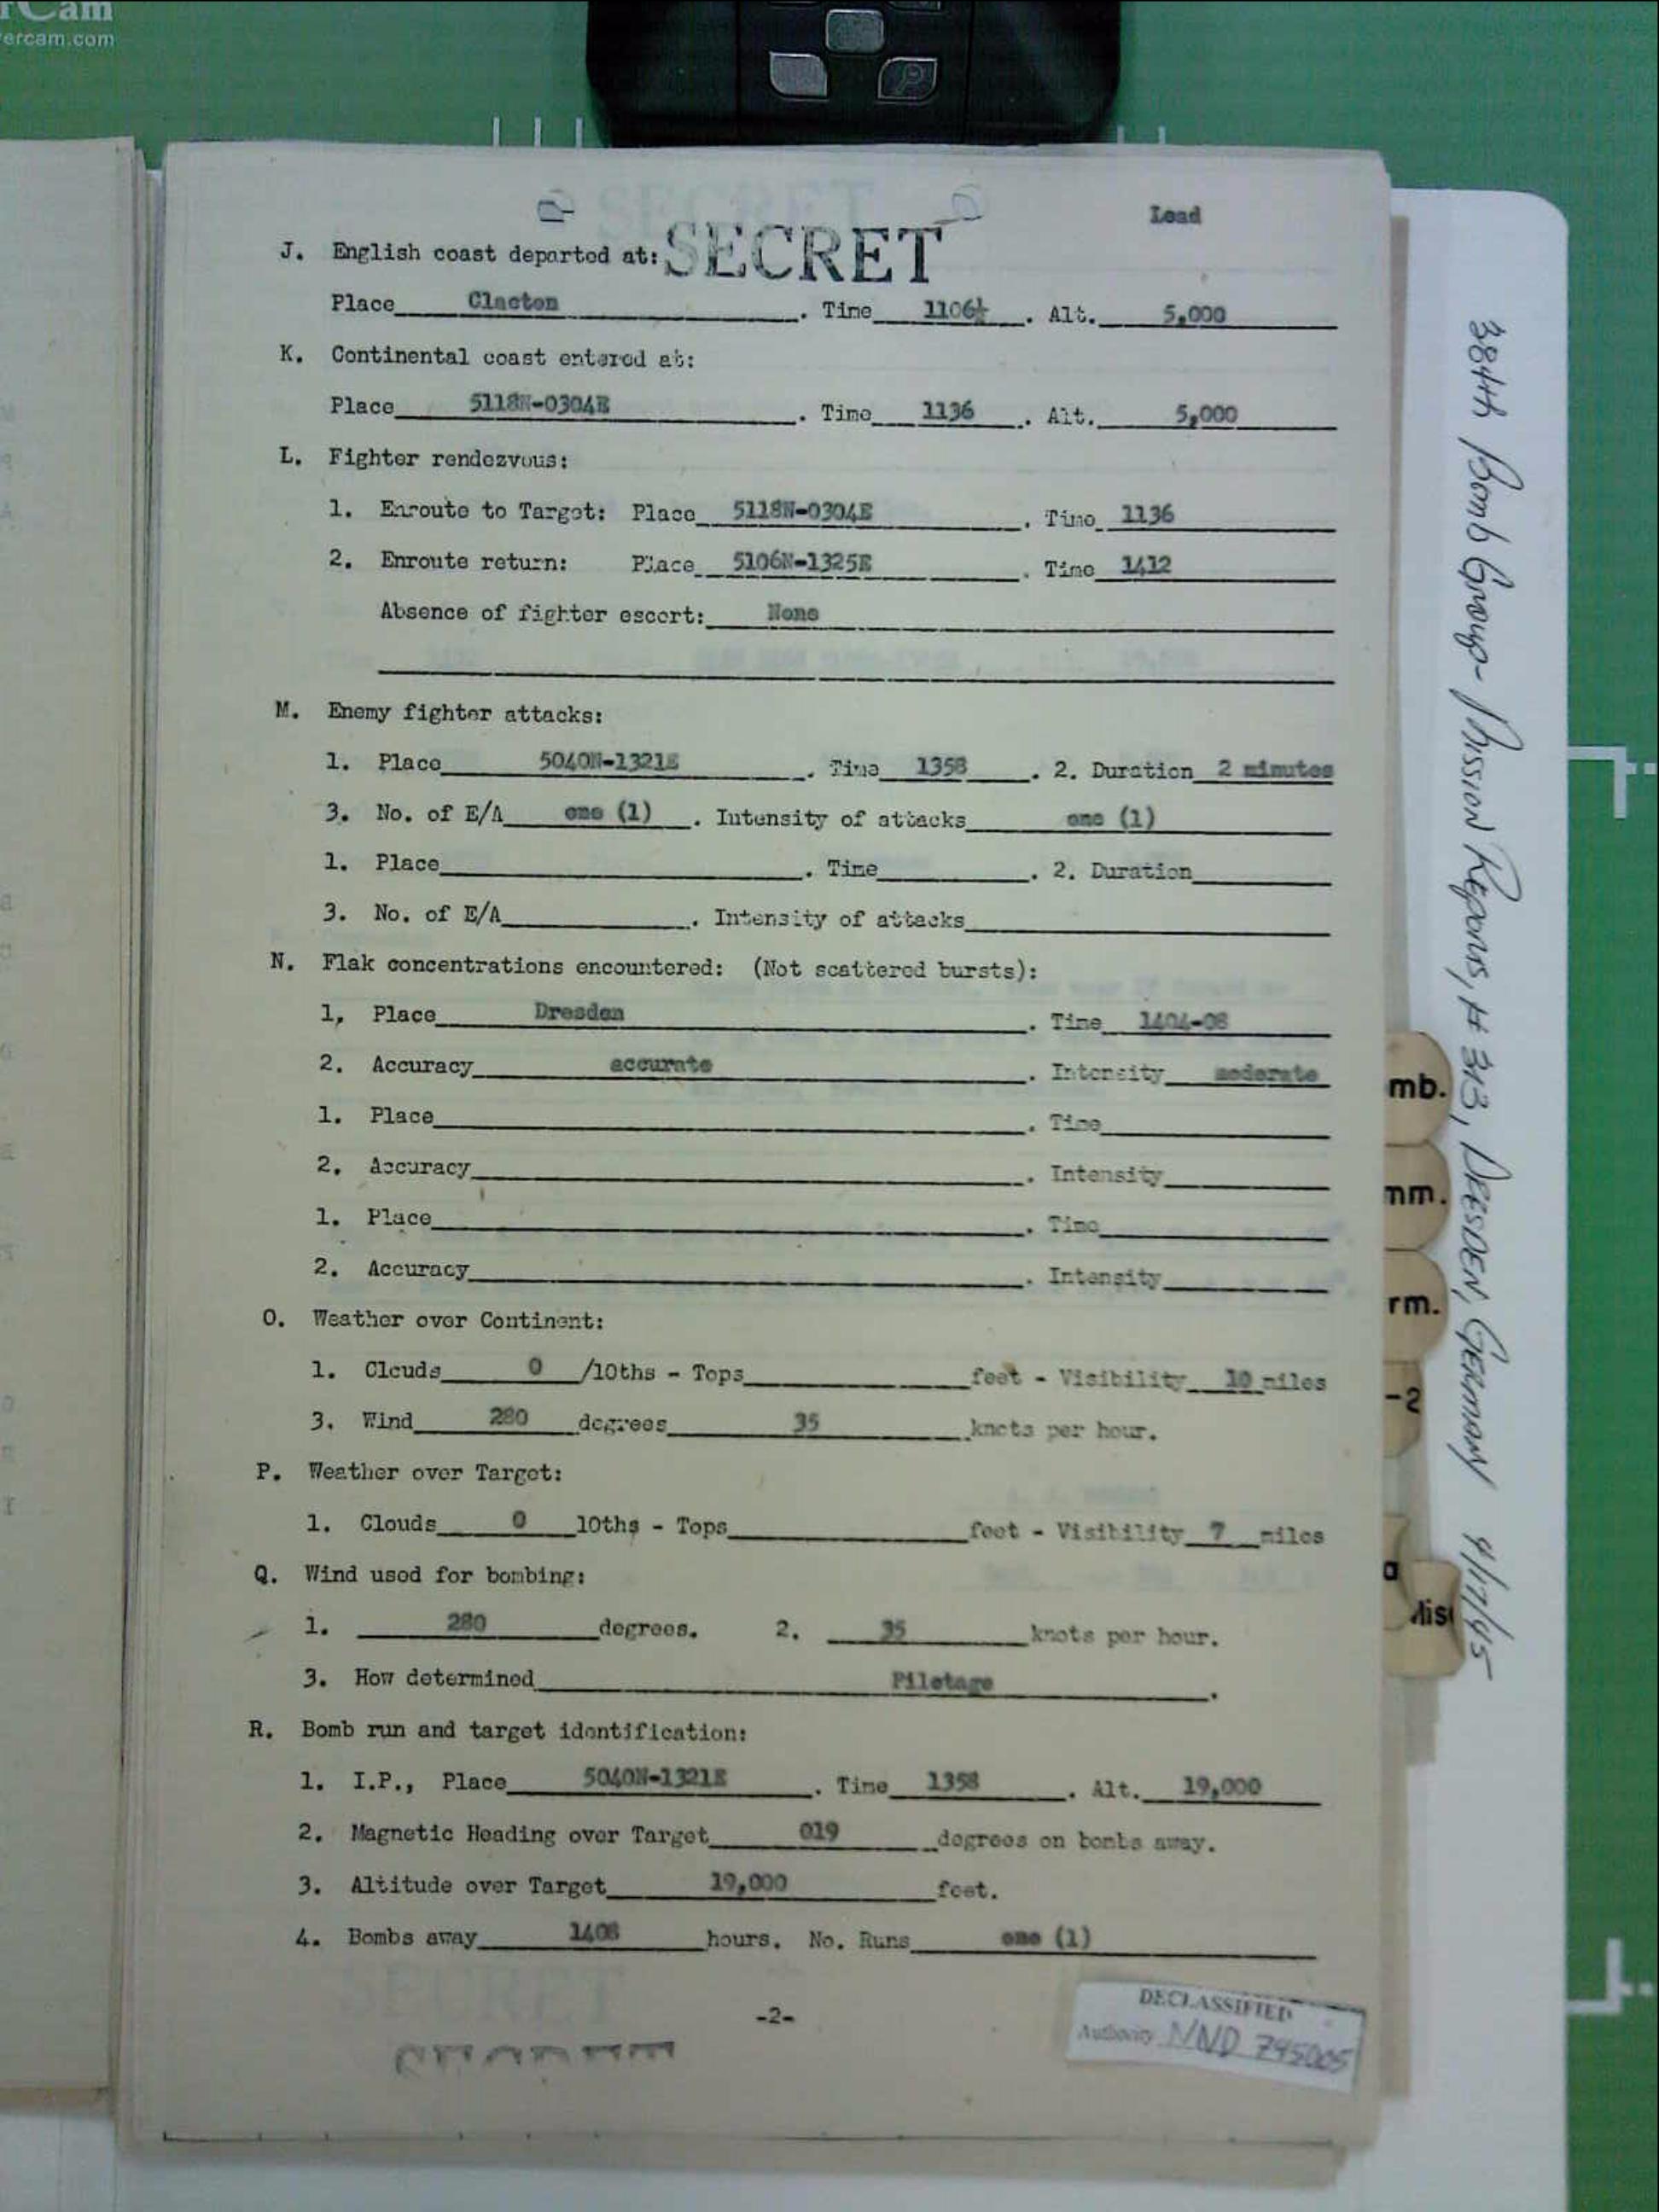 ercam.com
Lead
SECRET
J. English coast departed at:
Place Clacton . Time 1106½ . Alt. 5,000
K. Continental coast entered at:
Place 5118N-0304E . Time 1136 . Alt. 5,000
L. Fighter rendezvous:
1. Enroute to Target: Place 5118N-0304E . Time 1136
2. Enroute return: Place 5106N-1325E . Time 1412
Absence of fighter escort: None
M. Enemy fighter attacks:
1. Place 5040N-1321E . Time 1358 . 2. Duration 2 minutes
3. No. of E/A one (1) . Intensity of attacks one (1)
1. Place . Time . 2. Duration
3. No. of E/A . Intensity of attacks
N. Flak concentrations encountered: (Not scattered bursts):
1, Place Dresden . Time 1404-08
2. Accuracy accurate . Intensity moderate
1. Place . Time
2. Accuracy . Intensity
1. Place . Time
2. Accuracy . Intensity
O. Weather over Continent:
1. Clouds 0 /10ths - Tops feet - Visibility 10 miles
3. Wind 280 degrees 35 knots per hour.
P. Weather over Target:
1. Clouds 0 10ths - Tops feet - Visibility 7 miles
Q. Wind used for bombing:
1. 280 degrees. 2. 35 knots per hour.
3. How determined Pilotage .
R. Bomb run and target identification:
1. I.P., Place 5040N-1321E . Time 1358 . Alt. 19,000
2. Magnetic Heading over Target 019 degrees on bombs away.
3. Altitude over Target 19,000 feet.
4. Bombs away 1408 hours. No. Runs one (1)
-2-
SECRET
DECLASSIFIED
Authority NND 745005
384th Bomb Group - Mission Reports, # 313, DRESDEN, GERMANY 4/17/45
mb.
mm.
rm.
-2
a
Mis